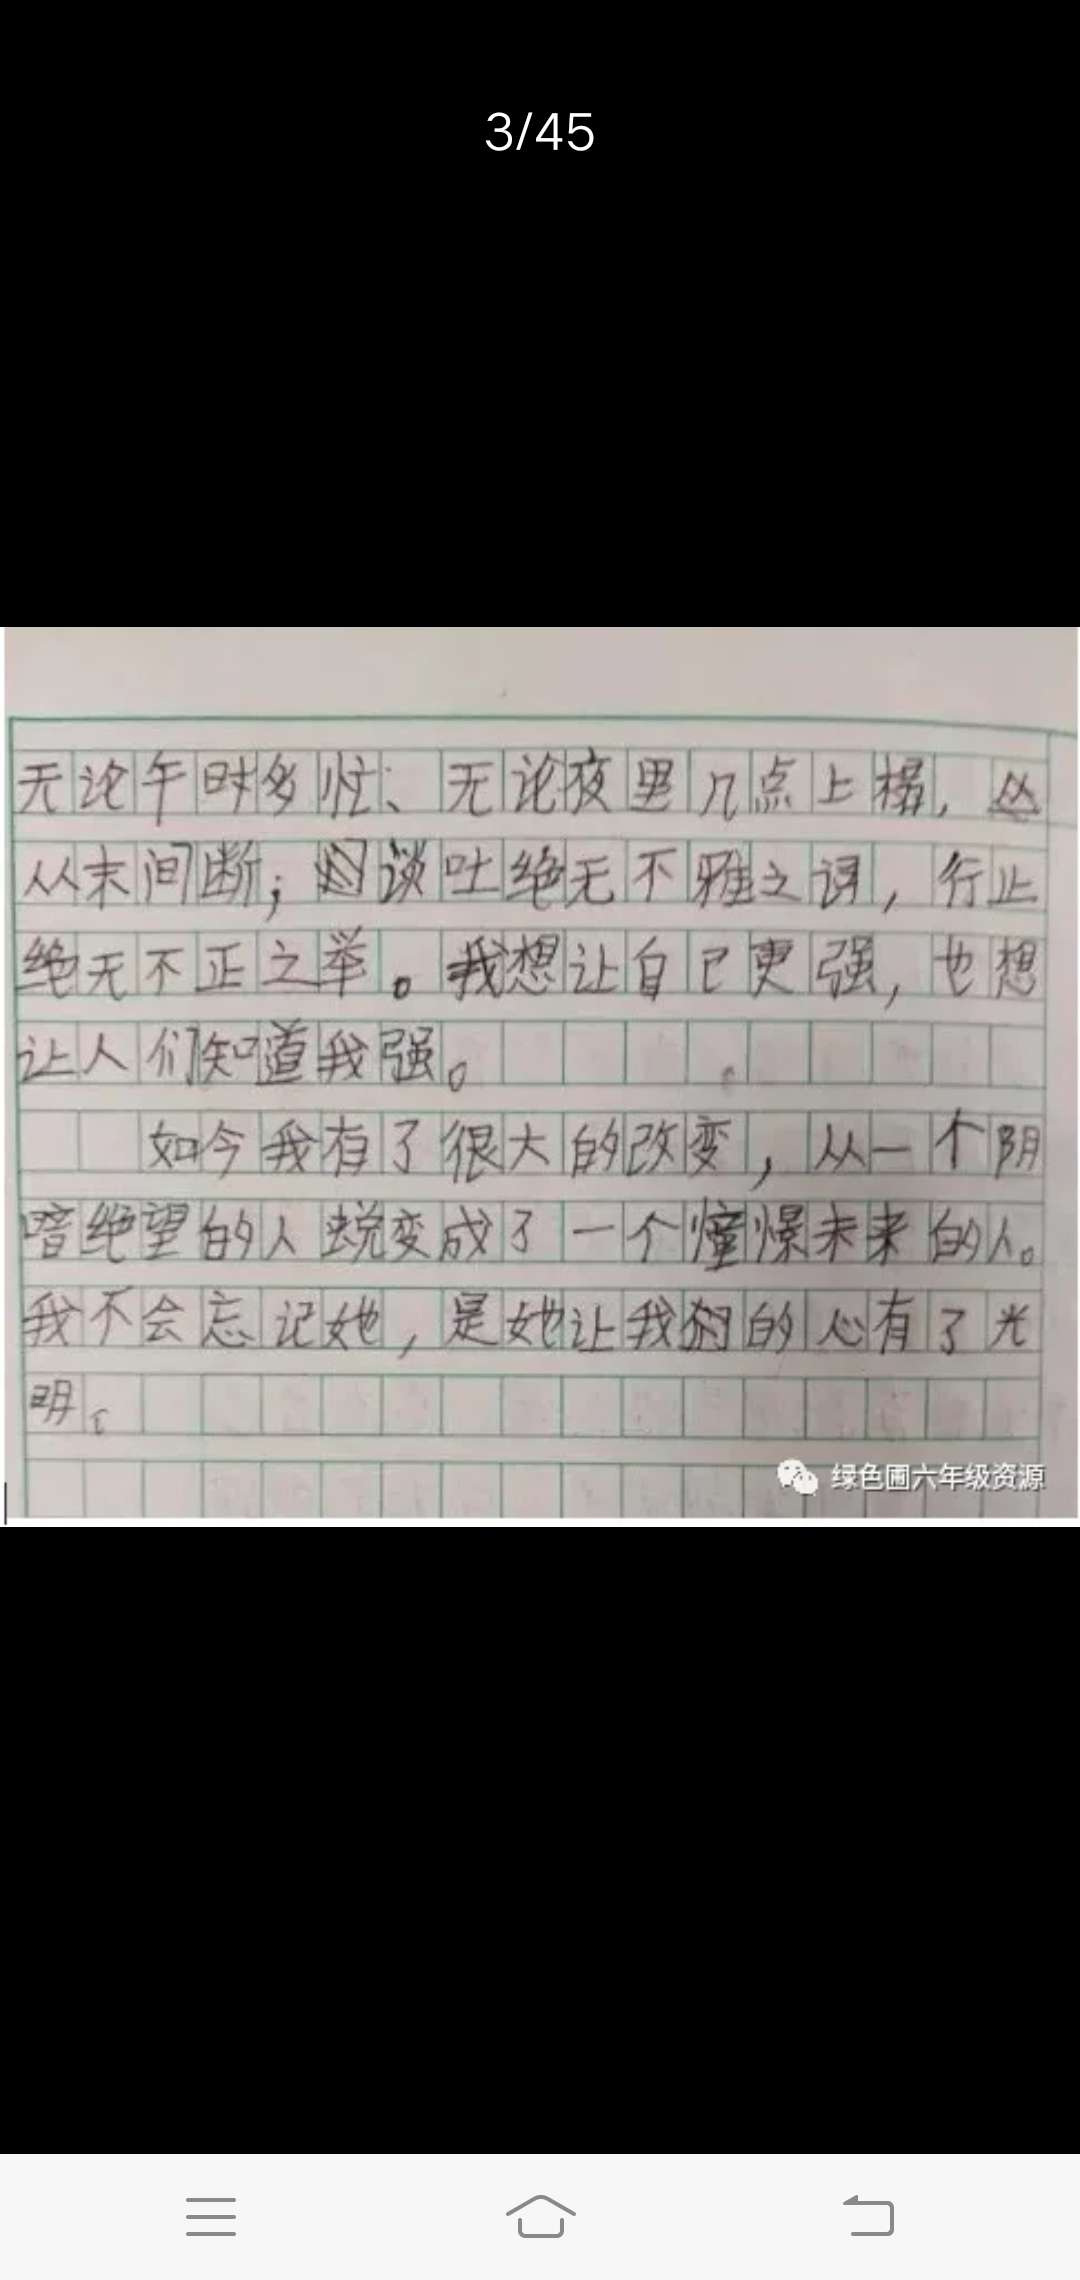 3/45
无论午时多忙、无论夜里几点上榻,
从末间断;谈吐绝无不雅之词,行止
绝无不正之举。我想让自己更强,也想
让人们知道我强。
如今我有了很大的改变,从一个阴
暗绝望的人蜕变成了一个憧憬未来的人。
我不会忘记她,是她让我的心有了光
明。
绿色圃六年级资源